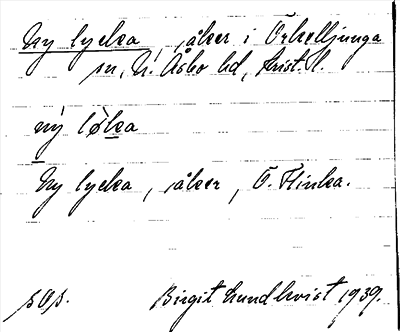 Ny lycka, åker i Örkelljunga
sn, N. Åsbo hd, krist. l.
ný lø̀ka
Ny lycka, åker, Ö. Flinka.
sOs. Birgit Lundkvist 1939.